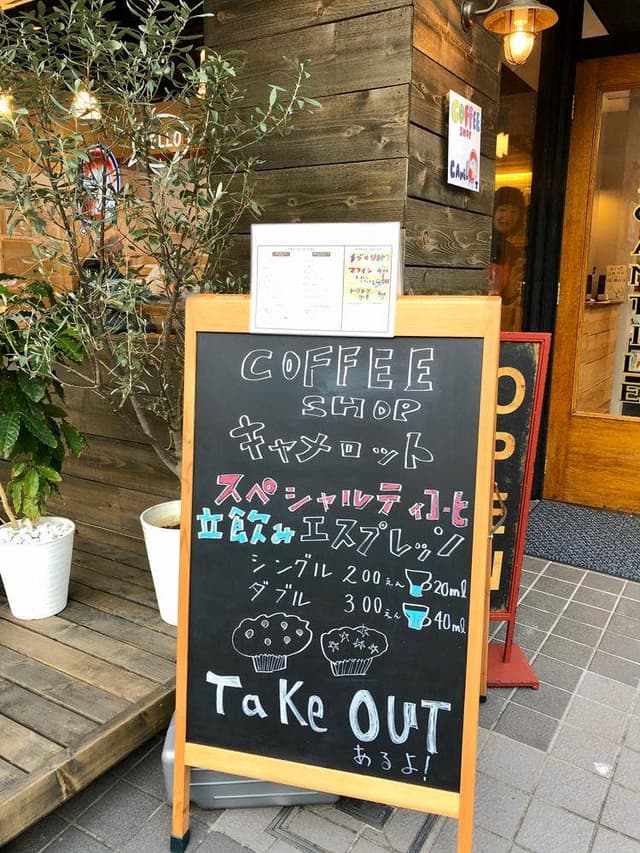 COFFEE
SHOP
キャメロット
スペシャルティコーヒー
立飲みエスプレッソ
シングル 200えん 20ml
ダブル 300えん 40ml
Take OUT
あるよ!
手づくり
マフィン
COFFEE
SHOP
OPEN